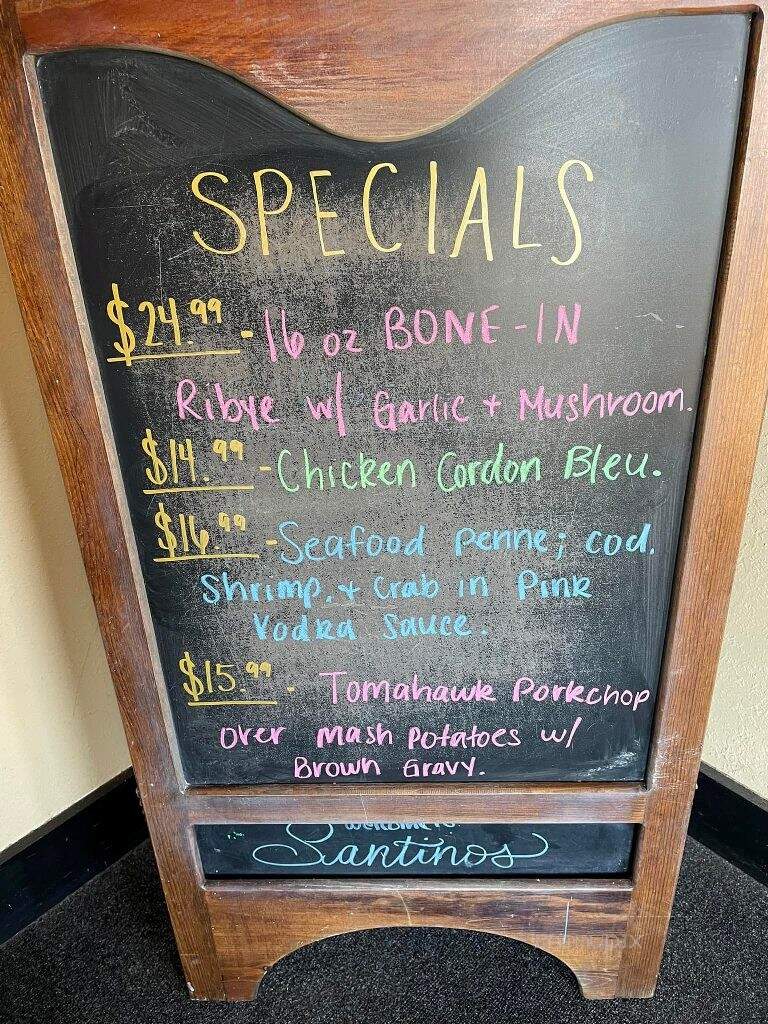 SPECIALS
$24.99 - 16 oz BONE-IN
Ribye w/ Garlic + Mushroom.
$14.99 - Chicken Cordon Bleu.
$16.99 - Seafood penne; cod.
Shrimp, + Crab in Pink
Vodka Sauce.
$15.99 - Tomahawk Porkchop
over mash potatoes w/
Brown Gravy.
Santinos